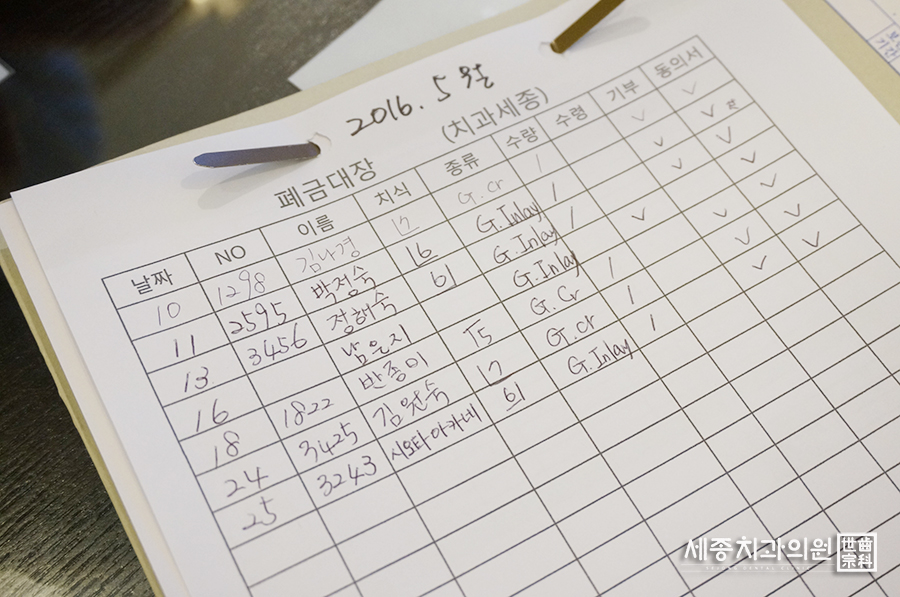 2016. 5월
폐금대장 (치과세종)
날짜 NO 이름 치식 종류 수량 수령 기부 동의서
10 1298 김나경 17 G.cr 1 ✓ ✓
11 2595 박정숙 16 G.Inlay 1 ✓ ✓
13 3456 정해숙 61 G.Inlay 1 ✓ ✓
16 남은지 G.Inlay ✓ ✓
18 1822 반종미 15 G.Cr 1 ✓ ✓
24 3425 김원숙 17 G.cr 1 ✓ ✓
25 3243 시오타아카네 61 G.Inlay 1 ✓ ✓
세종치과의원
SEJONG DENTAL CLINIC
世宗齒科